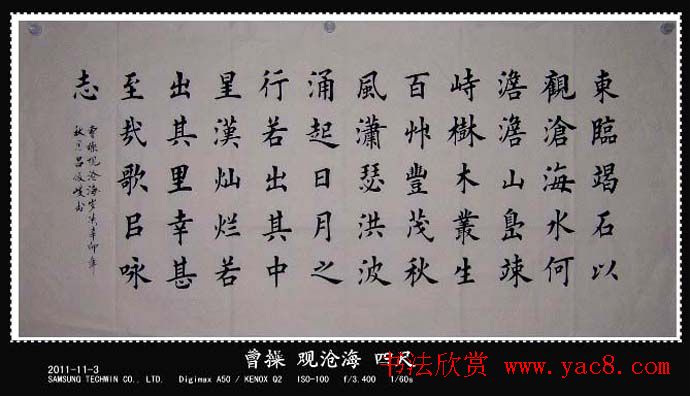 東臨竭石以
觀滄海水何
澹澹山島竦
峙樹木叢生
百艸豐茂秋
風瀟瑟洪波
涌起日月之
行若出其中
星漢灿烂若
出其里幸甚
至哉歌㠯咏
志
曹操观沧海岁辛卯年
秋月吕俊书
曹操 观沧海 四尺
2011-11-3
SAMSUNG TECHWIN CO., LTD. Digimax A50 / KENOX Q2 ISO-100 f/3.400 1/60s
书法欣赏 www.yac8.com